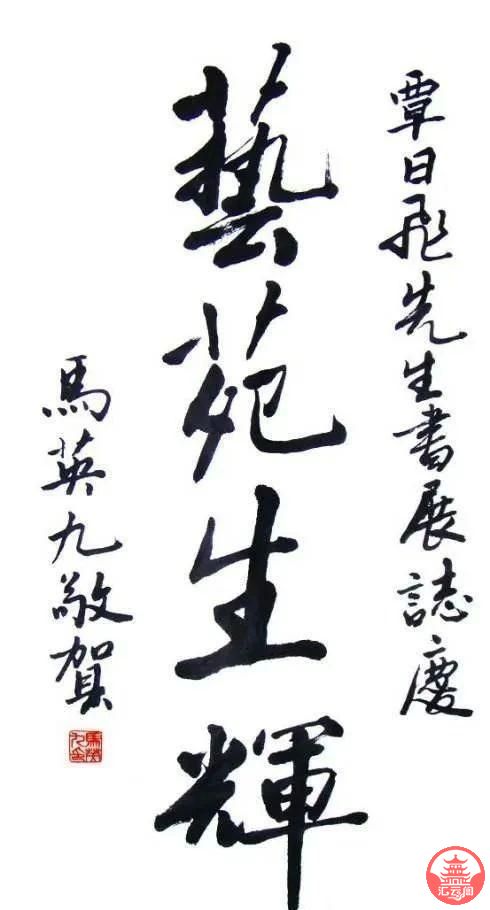 覃日飛先生書展誌慶
藝苑生輝
馬英九敬賀
馬英九印
汇云阁